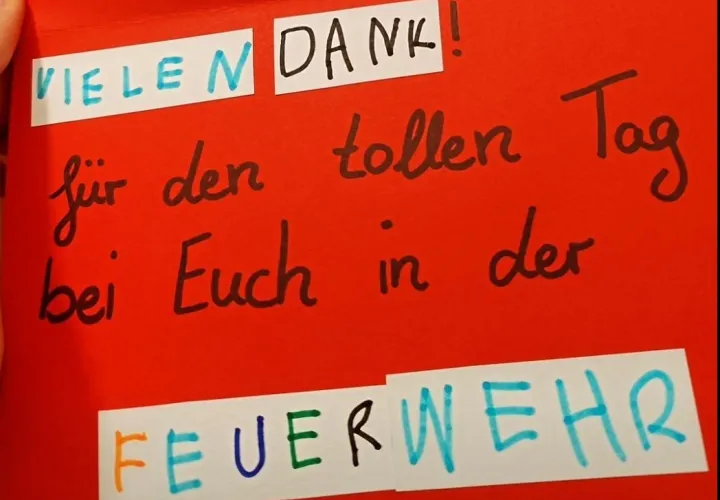 VIELEN DANK!
für den tollen Tag
bei Euch in der
FEUERWEHR